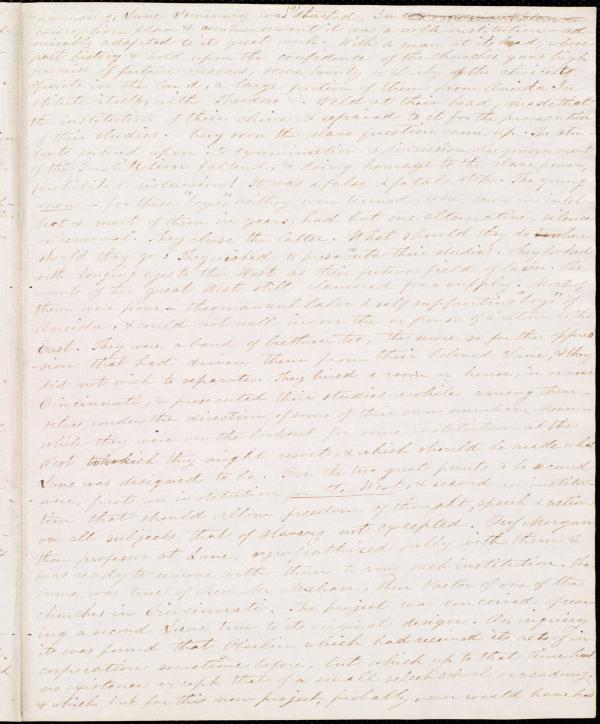 Lane Seminary was started. In
conception plan & commencement it was a noble institution - ad
mirably adapted to its great work. With a man at its head, whose
past history & hold upon the confidence of the churches gave high
promise of future success, some twenty or thirty of the choicest
spirits in the land, a large portion of them from Oneida In
stitute itself, with Theodore D. Weld at their head, made that
the institution of their choice, & repaired to it for the prosecution
of their studies. Very soon the slave question came up. The stu-
dents entered upon its examination & discussion. The government
of the Institution faltered, & doing homage to the slave power,
prohibited discussion! It was a false & fatal step. The young
men - for these "boys" as they were termed, were men in intel
lect & most of them in years, had but one alternative, silence
or removal. They chose the latter. What should they do & where
should they go? They wished to prosecute their studies. They looked
with longing eyes to the West as their future field of labor. The
wants of the great West still clamored for a supply. Most of
them were poor - the manual labor & self supporting "boys" of
Oneida, & could not well incur the expense of a return to the
East. They were a band of brethren too, the more so for the oppres
-sion that had driven them from their beloved Lane, & they
did not wish to separate. They hired a room or house, in or near
Cincinnati, & prosecuted their studies awhile among them-
selves under the direction of some of their own number. Mean-
while they were on the lookout for some institution at the
West to which they might resort, & which should be made what
Lane was designed to be. For the two great points to be secured
were, first an institution in the West, & second an institu-
tion that should allow freedom of thought, speech & action
on all subjects, that of slavery not excepted. Prof Morgan
then professor at Lane, sympathized fully with them &
was ready to remove with them to any such institution. The
same was true of Rev. Mr. Mahan, then Pastor of one of the
churches in Cincinnati. The project was conceived of rear-
ing a second Lane true to its original design. On inquiry
it was found that Oberlin which had received its acts of in
corporation sometime before, but which up to that time had
no existence except that of a small select school or academy,
& which but for this new project, probably never would have had